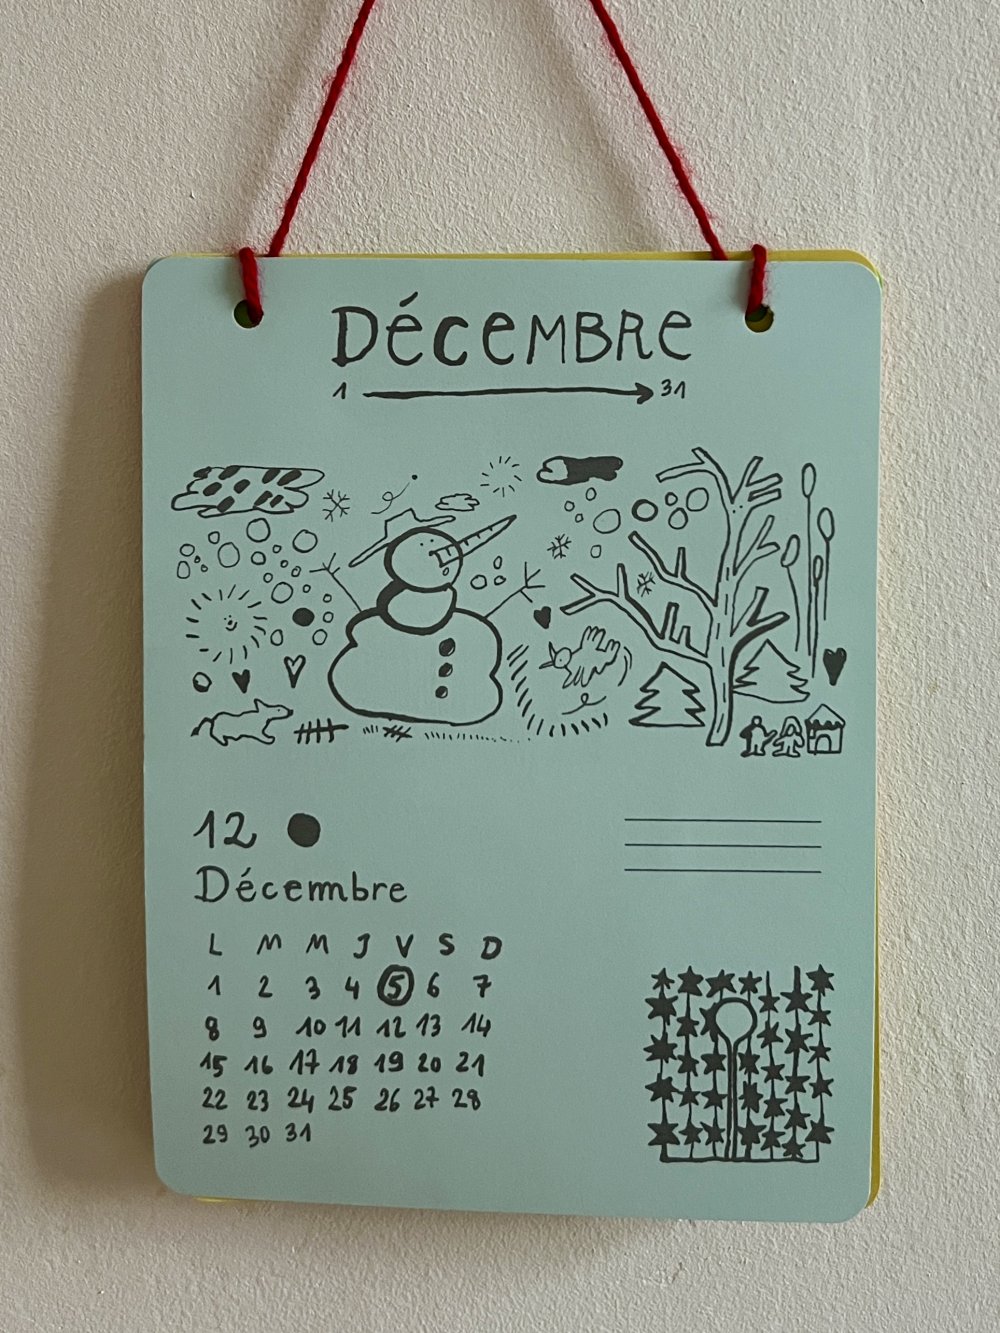 DéceMBRe
1 31
12
Décembre
L M M J V S D
1 2 3 4 5 6 7
8 9 10 11 12 13 14
15 16 17 18 19 20 21
22 23 24 25 26 27 28
29 30 31